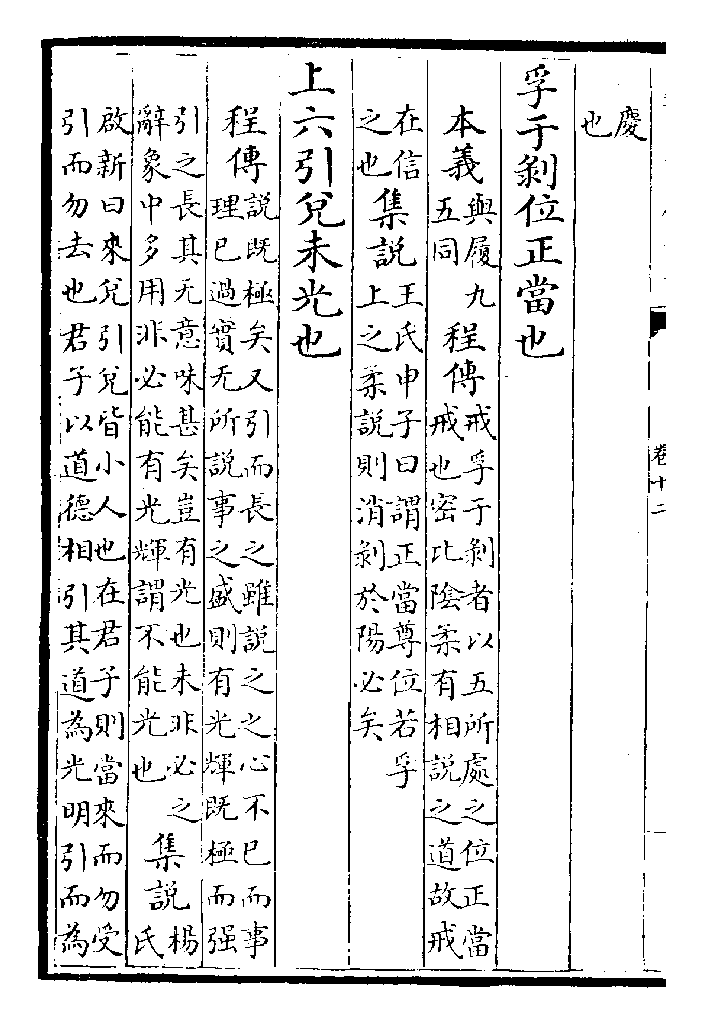 慶也
孚于剝位正當也
本義與履九五同程傳戒孚于剝者以五所處之位正當戒也密比陰柔有相說之道故戒
在信之也集說王氏申子曰謂正當尊位若孚上之柔說則消剝於陽必矣
上六引兌未光也
程傳說既極矣又引而長之雖說之之心不已而事理已過實无所說事之盛則有光輝既極而强
引之長其无意味甚矣豈有光也未非必之辭象中多用非必能有光輝謂不能光也集說楊氏
啟新曰來兌引兌皆小人也在君子則當來而勿受引而勿去也君子以道德相引其道為光明引而為
卷十二